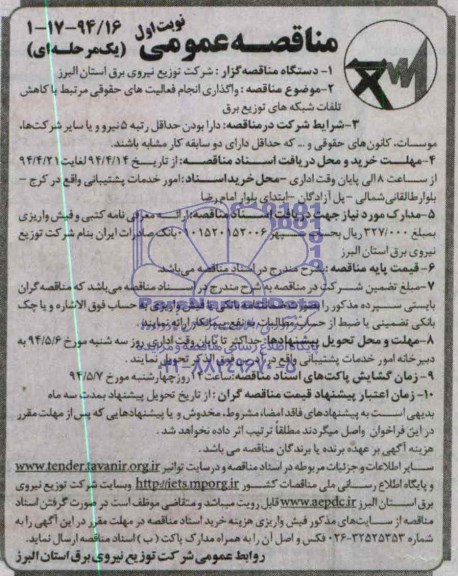 نوبت اول
مناقصه عمومی
۱-۱۷-۹۴/۱۶
(یک مرحله ای)
۱- دستگاه مناقصه گزار : شرکت توزیع نیروی برق استان البرز
۲-موضوع مناقصه : واگذاری انجام فعالیت های حقوقی مرتبط با کاهش
تلفات شبکه های توزیع برق
۳-شرایط شرکت در مناقصه: دارا بودن حداقل رتبه ۵ نیرو و یا سایر شرکت‌ها،
موسسات، کانون‌های حقوقی و ... که حداقل دارای دو سابقه کار مشابه باشند.
۴-مهلت خرید و محل دریافت اسناد مناقصه: از تاریخ ۹۴/۴/۱۴ لغایت ۹۴/۴/۲۱
از ساعت ۸ الی پایان وقت اداری -محل خرید اسناد: امور خدمات پشتیبانی واقع در کرج -
بلوار طالقانی شمالی - پل آزادگان -ابتدای بلوار امام رضا
۵-مدارک مورد نیاز جهت دریافت اسناد مناقصه: ارائه معرفی نامه کتبی و فیش واریزی
بمبلغ ۳۲۷/۰۰۰ ریال بحساب سپهر ۰۱۰۱۵۲۰۱۵۲۰۰۶ بانک صادرات ایران بنام شرکت توزیع
نیروی برق استان البرز
۶- قیمت پایه مناقصه : بشرح مندرج در اسناد مناقصه می‌باشد.
۷-مبلغ تضمین شرکت در مناقصه به شرح مندرج در اسناد مناقصه می‌باشد که مناقصه گران
بایستی سپرده مذکور را بصورت ضمانتنامه بانکی، فیش واریزی به حساب فوق الاشاره و یا چک
بانکی تضمینی یا ضبط از حساب مطالبات به نفع مناقصه گزار ارائه نمایند.
۸-مهلت و محل تحویل پیشنهادها: حداکثر تا پایان وقت اداری روز سه شنبه مورخ ۹۴/۵/۶ به
دبیرخانه امور خدمات پشتیبانی واقع در آدرس فوق الذکر تحویل نمایند.
۹- زمان گشایش پاکت‌های اسناد مناقصه: ساعت ۱۲ روز چهارشنبه مورخ ۹۴/۵/۷
۱۰- زمان اعتبار پیشنهاد قیمت مناقصه گران : از تاریخ تحویل پیشنهاد بمدت سه ماه
بدیهی است به پیشنهادهای فاقد امضا، مشروط، مخدوش و یا پیشنهادهایی که پس از مهلت مقرر
در این فراخوان واصل میگردند مطلقاً ترتیب اثر داده نخواهد شد .
هزینه آگهی بر عهده برنده یا برندگان مناقصه می باشد.
سایر اطلاعات و جزئیات مربوطه در اسناد مناقصه و در سایت توانیر www.tender.tavanir.org.ir
و پایگاه اطلاع رسانی ملی مناقصات کشور http://iets.mporg.ir وبسایت شرکت توزیع نیروی
برق استان البرز www.aepdc.ir قابل رویت میباشد و متقاضی موظف است در صورت گرفتن اسناد
مناقصه از سایت‌های مذکور فیش واریزی هزینه خرید اسناد مناقصه در مهلت مقرر در این آگهی را به
شماره ۳۲۵۲۵۳۵۳-۰۲۶ فکس و اصل آن را به همراه مدارک پاکت ( ب ) اسناد مناقصه ارسال نماید.
روابط عمومی شرکت توزیع نیروی برق استان البرز